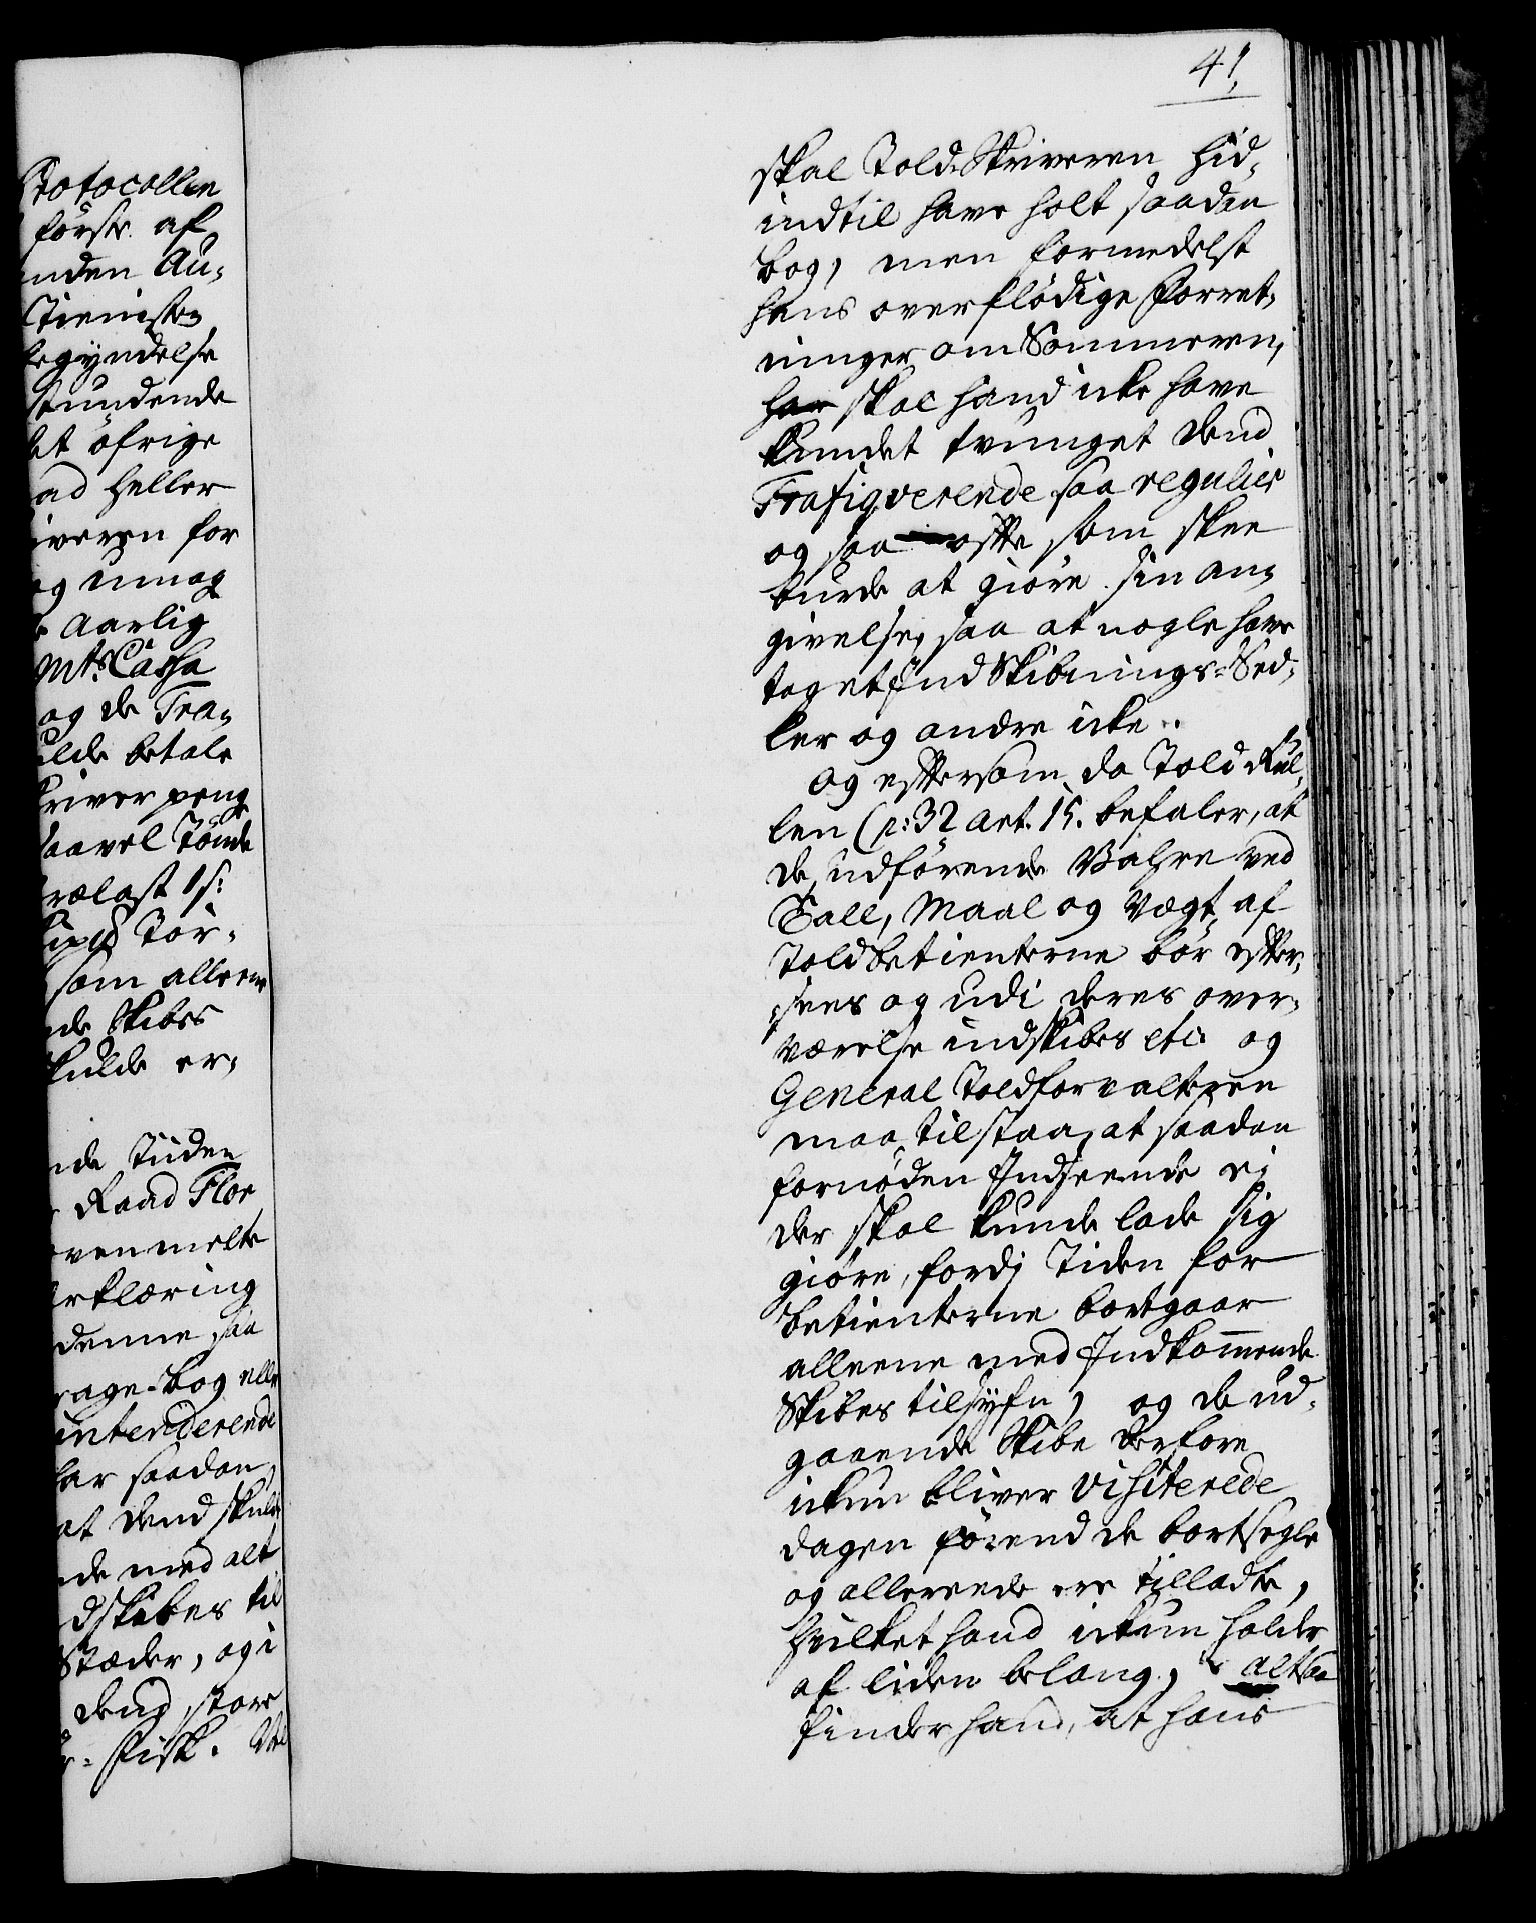 Protocollen
först af
nden Au-
Tienisten
begyndelse
stundende
et öfrige
ad heller
iveren for
og umag
Aarlig
Mts Cassa
og de Tra-
ulde betale
kriver peng
saavel Tönde
rælast 1 s:
Tör-
som alleene
de Skibes
kulde er-
de Tiiden
Raad Flor
ovenmelte
erklæring
denne saa
rage-bog eller
intenderende
har saadan
at dend skulde
de med alt
dskibes til
Stæder, og i
dend store
fisk.
41,
skal Told-Skriveren hid-
indtil have holt saadan
bog, men formedelst
hans overflödige forret-
ninger om Sommeren,
har skal hand icke have
kundet tvunget dend
Trafiqverende saa regulier
og saa ofte som skee
burde at giöre sin an-
givelse, saa at nogle have
taget Jndskibnings-Sed-
ler og andre icke.
Og eftersom da Told Rul-
len (p: 32 art. 15. befaler, at
de udförende Vahre ved
Tall, Maal og Vægt, af
Toldbetienterne bör efter-
sees og udi deres over-
værelse indskibes etc: og
General Toldforvalteren
maa tilstaa, at saadan
fornöden Jndseende ej
der skal kunde lade sig
giöre, fordj Tiden for
betienterne bortgaar
alleene med Jndkommende
Skibes tilsyfn, og de ud-
gaaende Skibe derfore
ickun bliver visiterede
dagen förend de bortsegle
og allereede ere tilladte,
hvilket hand ickun holder
af liden belang, altsaa
finder hand, at hans